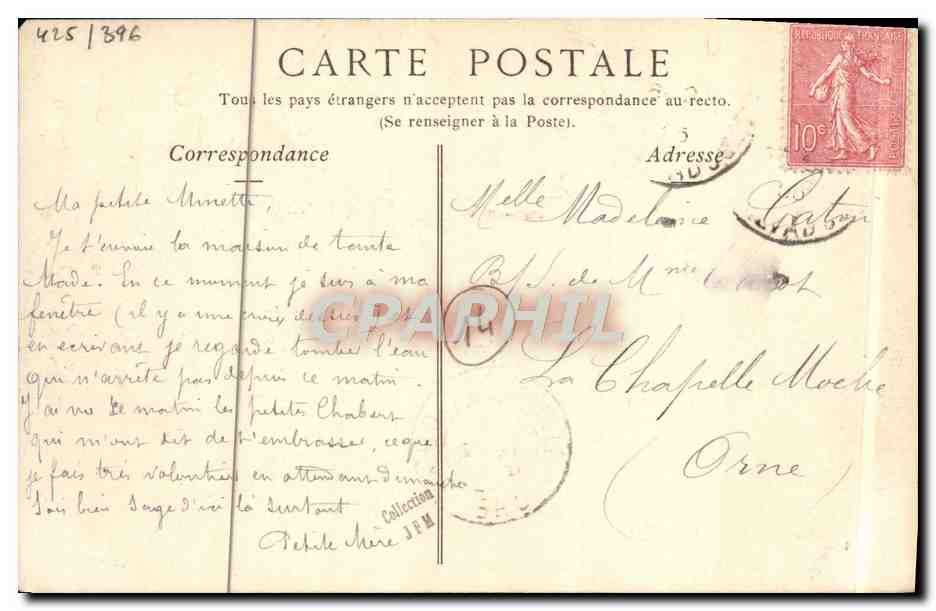 425/396
CARTE POSTALE
Tous les pays étrangers n'acceptent pas la correspondance au recto.
(Se renseigner à la Poste).
Correspondance
Ma petite Minette,
Je t'envoie la maison de tante
Made. En ce moment je suis à ma
fenêtre (il y a une croix dessus) et
en écrivant je regarde tomber l'eau
qui n'arrête pas depuis ce matin.
J'ai vu ce matin les petites Chabert
qui m'ont dit de t'embrasser, ce que
je fais très volontiers en attendant dimanche
Sois bien sage d'ici là surtout
Petite Mère
Collection
JFM
Adresse
Melle Madeleine
B/S. de Mme
La Chapelle Moche
(Orne)
14
REPUBLIQUE FRANÇAISE
10c
POSTES
CPARPHIL